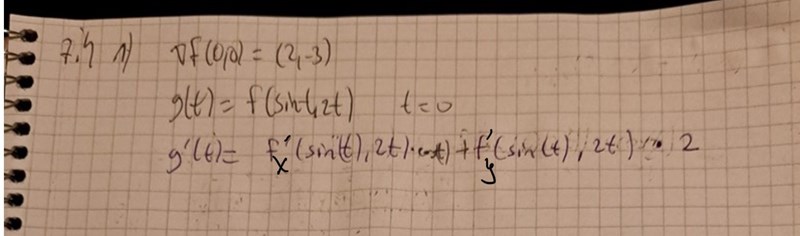 7.4 1) ∇f(0,0) = (2,-3)
g(t) = f(sint, 2t) t=0
g'(t) = f'x (sin(t), 2t) · cos(t) + f'y (sin(t), 2t) · 2